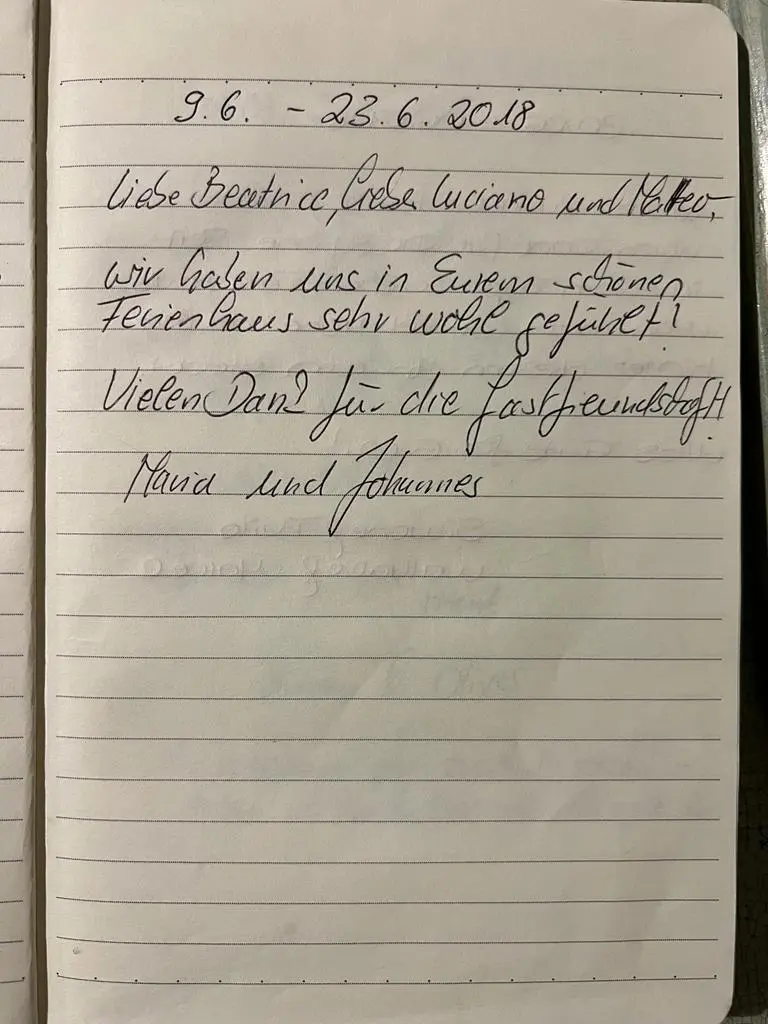 9.6. - 23.6.2018
Liebe Beatrice, lieber Luciano und Matteo,
wir haben uns in Eurem schönen
Ferienhaus sehr wohl gefühlt!
Vielen Dank für die Gastfreundschaft!
Maria und Johannes